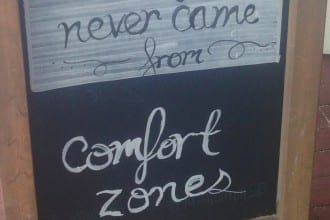 never came
from
comfort
zones